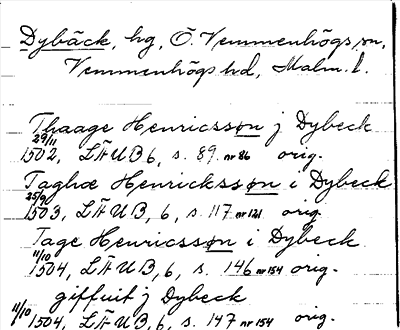 Dybäck, hg, Ö. Vemmenhögs sn,
Vemmenhögs hd, Malm. l.
Thaage Henricsson j Dybeck
29/11 1502, LÄUB 6, s. 89. nr 86 orig.
Taghæ Henricksson i Dybeck
25/9 1503, LÄUB, 6, s. 117 nr 121 orig.
Tage Henricsson i Dybeck
11/10 1504, LÄUB, 6, s. 146 nr 154 orig.
giffuit j Dybeck
11/10 1504, LÄUB, 6, s. 147 nr 154 orig.